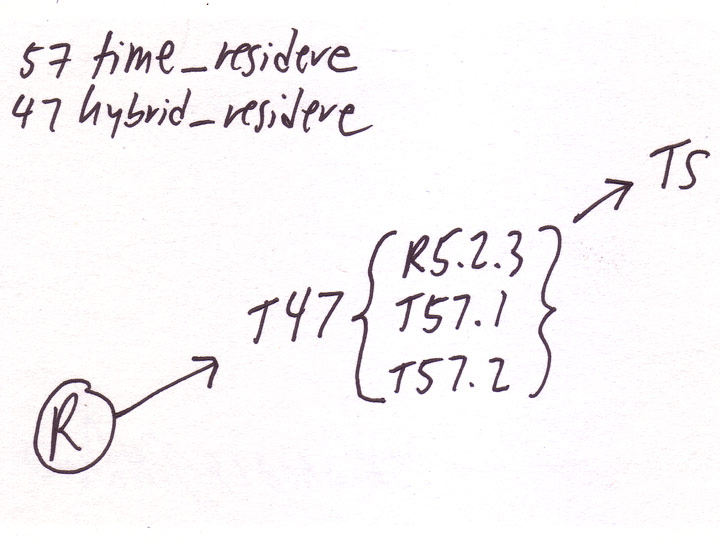 57 time_residere
47 hybrid_residere
TS
R5.2.3
T47 { T57.1 }
T57.2
R